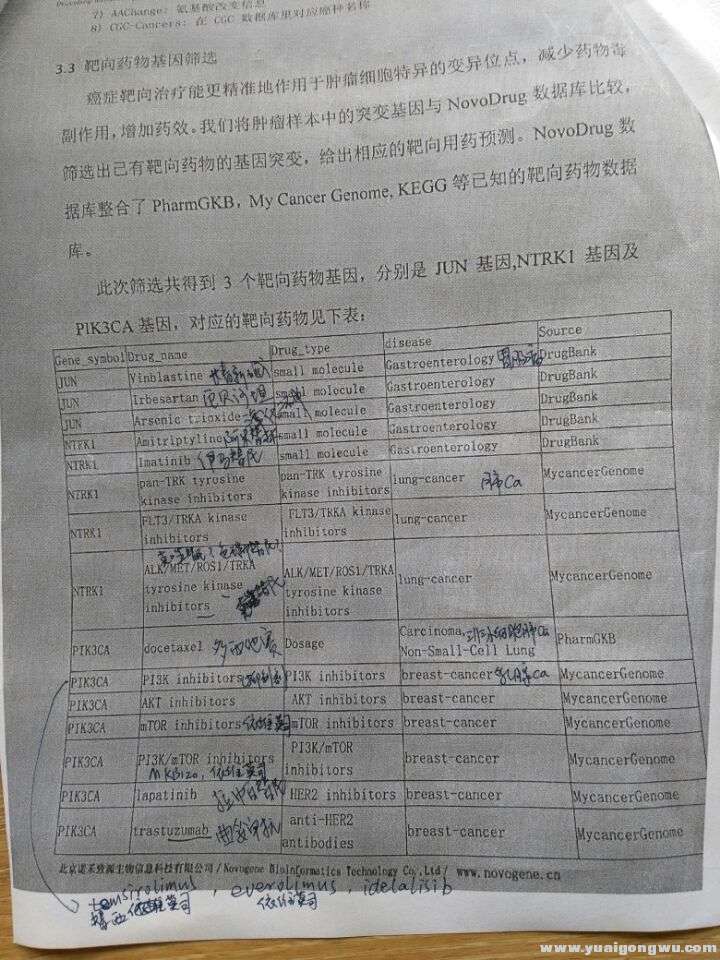 7) AAChange: 氨基酸改变信息
8) CGC-Cancers: 在 CGC 数据库里对应癌种名称
3.3 靶向药物基因筛选
癌症靶向治疗能更精准地作用于肿瘤细胞特异的变异位点，减少药物毒
副作用，增加药效。我们将肿瘤样本中的突变基因与 NovoDrug 数据库比较，
筛选出已有靶向药物的基因突变，给出相应的靶向用药预测。NovoDrug 数
据库整合了 PharmGKB，My Cancer Genome, KEGG 等已知的靶向药物数据
库。
此次筛选共得到 3 个靶向药物基因，分别是 JUN 基因,NTRK1 基因及
PIK3CA 基因，对应的靶向药物见下表：
Gene_symbol Drug_name Drug_type disease Source
JUN Vinblastine small molecule Gastroenterology DrugBank
JUN Irbesartan small molecule Gastroenterology DrugBank
JUN Arsenic trioxide small molecule Gastroenterology DrugBank
NTRK1 Amitriptyline small molecule Gastroenterology DrugBank
NTRK1 Imatinib 伊马替尼 small molecule Gastroenterology DrugBank
NTRK1 pan-TRK tyrosine kinase inhibitors pan-TRK tyrosine kinase inhibitors lung-cancer 肺Ca MycancerGenome
NTRK1 FLT3/TRKA kinase inhibitors FLT3/TRKA kinase inhibitors lung-cancer MycancerGenome
NTRK1 ALK/MET/ROS1/TRKA tyrosine kinase inhibitors ALK/MET/ROS1/TRKA tyrosine kinase inhibitors lung-cancer MycancerGenome
PIK3CA docetaxel 多西他赛 Dosage Carcinoma, Non-Small-Cell Lung PharmGKB
PIK3CA PI3K inhibitors PI3K inhibitors breast-cancer 乳腺Ca MycancerGenome
PIK3CA AKT inhibitors AKT inhibitors breast-cancer MycancerGenome
PIK3CA mTOR inhibitors 依维莫司 mTOR inhibitors breast-cancer MycancerGenome
PIK3CA PI3K/mTOR inhibitors 依维莫司 PI3K/mTOR inhibitors breast-cancer MycancerGenome
PIK3CA lapatinib 拉帕替尼 HER2 inhibitors breast-cancer MycancerGenome
PIK3CA trastuzumab 曲妥珠单抗 anti-HER2 antibodies breast-cancer MycancerGenome
北京诺禾致源生物信息科技有限公司/Novogene Bioinformatics Technology Co.,Ltd/ www.novogene.cn
temsirolimus, everolimus, idelalisib
依维莫司
www.yuaigongwu.com